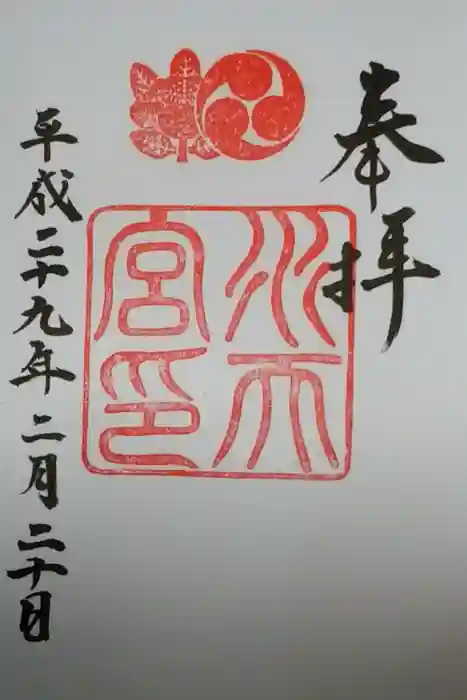 奉拝
水天
宮印
平成二十九年二月二十日